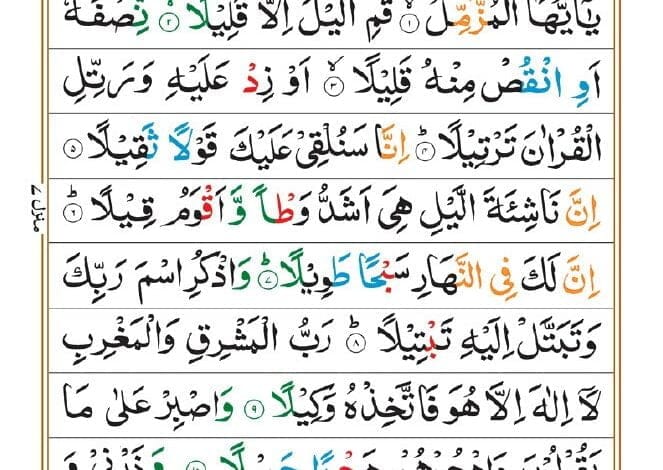 يٰۤاَيُّهَا الْمُزَّمِّلُ ۙ﴿۱﴾ قُمِ الَّيْلَ اِلَّا قَلِيْلًا ۙ﴿۲﴾ نِّصْفَهٗۤ
اَوِ انْقُصْ مِنْهُ قَلِيْلًا ۙ﴿۳﴾ اَوْ زِدْ عَلَيْهِ وَرَتِّلِ
الْقُرْاٰنَ تَرْتِيْلًا ؕ﴿۴﴾ اِنَّا سَنُلْقِيْ عَلَيْكَ قَوْلًا ثَقِيْلًا ﴿۵﴾
اِنَّ نَاشِئَةَ الَّيْلِ هِيَ اَشَدُّ وَطْاً وَّاَقْوَمُ قِيْلًا ؕ﴿۶﴾
اِنَّ لَكَ فِي النَّهَارِ سَبْحًا طَوِيْلًا ؕ﴿۷﴾ وَاذْكُرِ اسْمَ رَبِّكَ
وَتَبَتَّلْ اِلَيْهِ تَبْتِيْلًا ؕ﴿۸﴾ رَبُّ الْمَشْرِقِ وَالْمَغْرِبِ
لَاۤ اِلٰهَ اِلَّا هُوَ فَاتَّخِذْهُ وَكِيْلًا ﴿۹﴾ وَاصْبِرْ عَلٰى مَا
يَقُوْلُوْنَ وَاهْجُرْهُمْ هَجْرًا جَمِيْلًا ﴿۱۰﴾ وَذَرْنِيْ وَ
منزل ۷